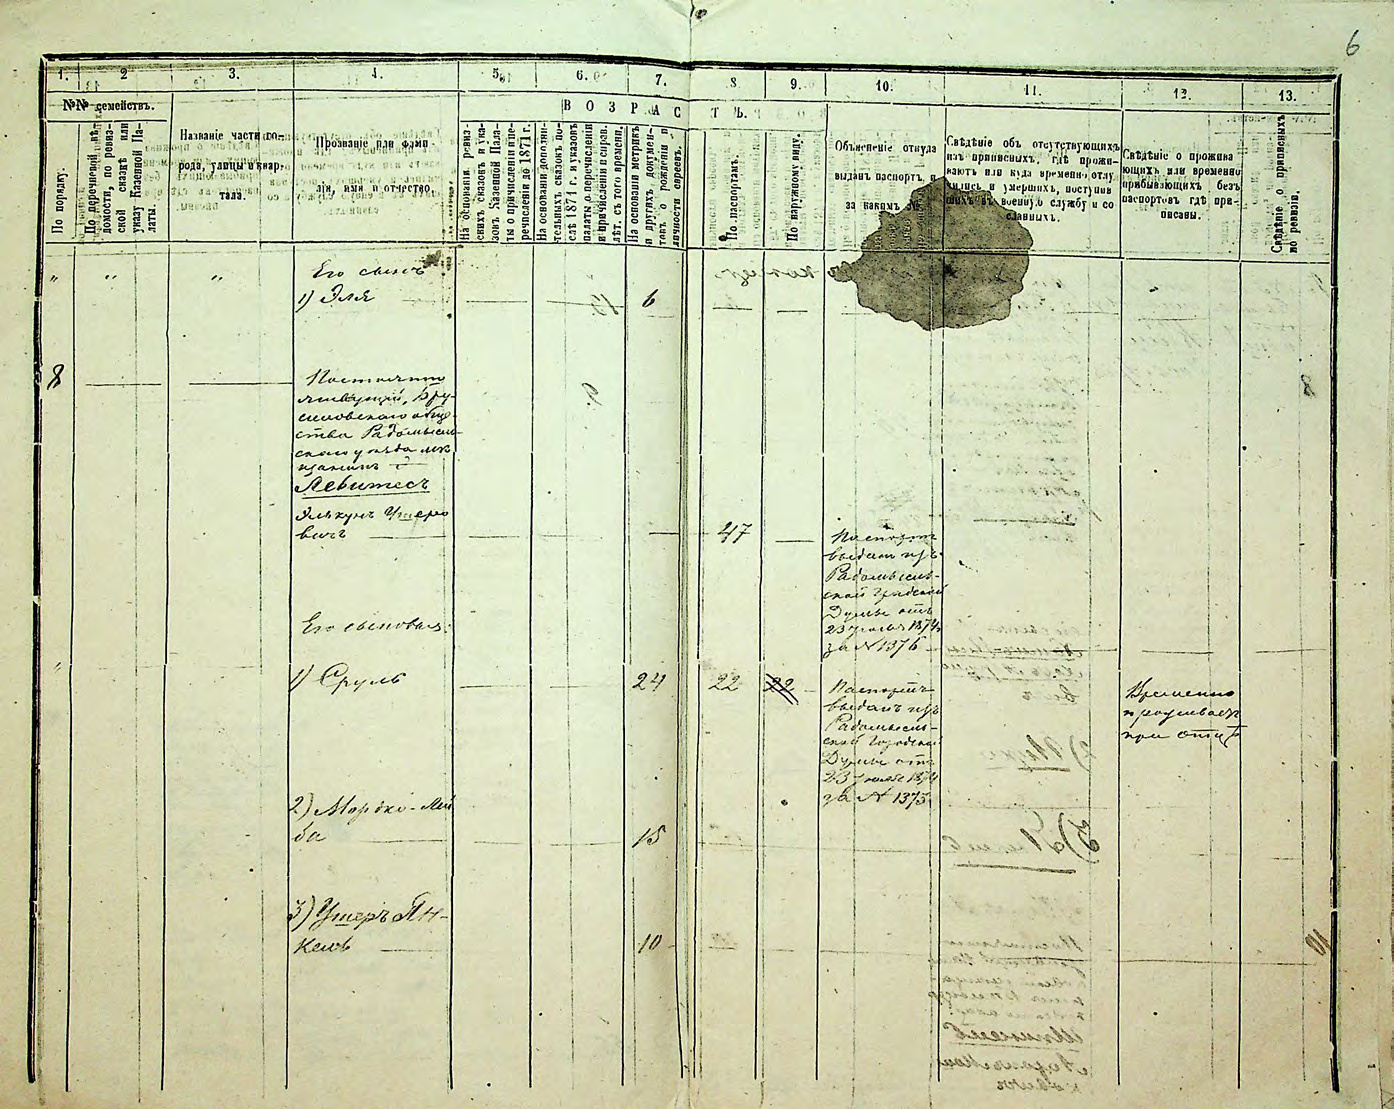 6
1. 2 3. 4. 5. 6. 7. 8. 9. 10. 11. 12. 13.
№№ семействъ.
В О З Р А С Т Ъ.
По порядку.
По перечневой вѣдомости, по ревизской сказкѣ или указу Казенной Палаты.
Названіе части города, улицы и квартала.
Прозваніе или фамилія, имя и отчество.
На основаніи ревизскихъ сказокъ и указовъ Казенной Палаты о причисленіи и перечисленіи до 1871 г.
На основаніи дополнительныхъ сказокъ послѣ 1871 г. и указовъ палаты о перечисленіи и причисленіи и справ. лѣт. съ того времени.
На основаніи метрикъ и другихъ документовъ о рожденіи и личности евреевъ.
По паспортамъ.
По наружному виду.
Объясненіе откуда
выданъ паспортъ, и
за какимъ №.
Свѣдѣніе объ отсутствующихъ
изъ приписныхъ, гдѣ прожи-
ваютъ или куда временно отлу
чились и умершихъ, поступив
шихъ въ военную службу и со
сланныхъ.
Свѣдѣніе о прожива
ющихъ или временно
прибывающихъ безъ
паспортовъ гдѣ при-
писаны.
Свѣдѣніе о приписныхъ
по ревизіи.
" " "
Его сынъ
1) Эля 6
8
Бру-
силовскаго обще-
ства Радомысль-
скаго уѣзда мѣ
щанинъ
Левитесъ
Элькунъ Ушеро
вичъ 47
Паспортъ
выданъ изъ
Радомысль-
ской Градской
Думы отъ
23 1874
за № 1376
Его сыновья:
1) Сруль 24 22 22
Паспортъ
выданъ изъ
Радомысль-
ской Городской
Думы отъ
23 1874
за № 1375
Временно
проживаетъ
при отцѣ
2) Мордко-Лей
ба 15
3) Ушеръ Ян-
кель 10